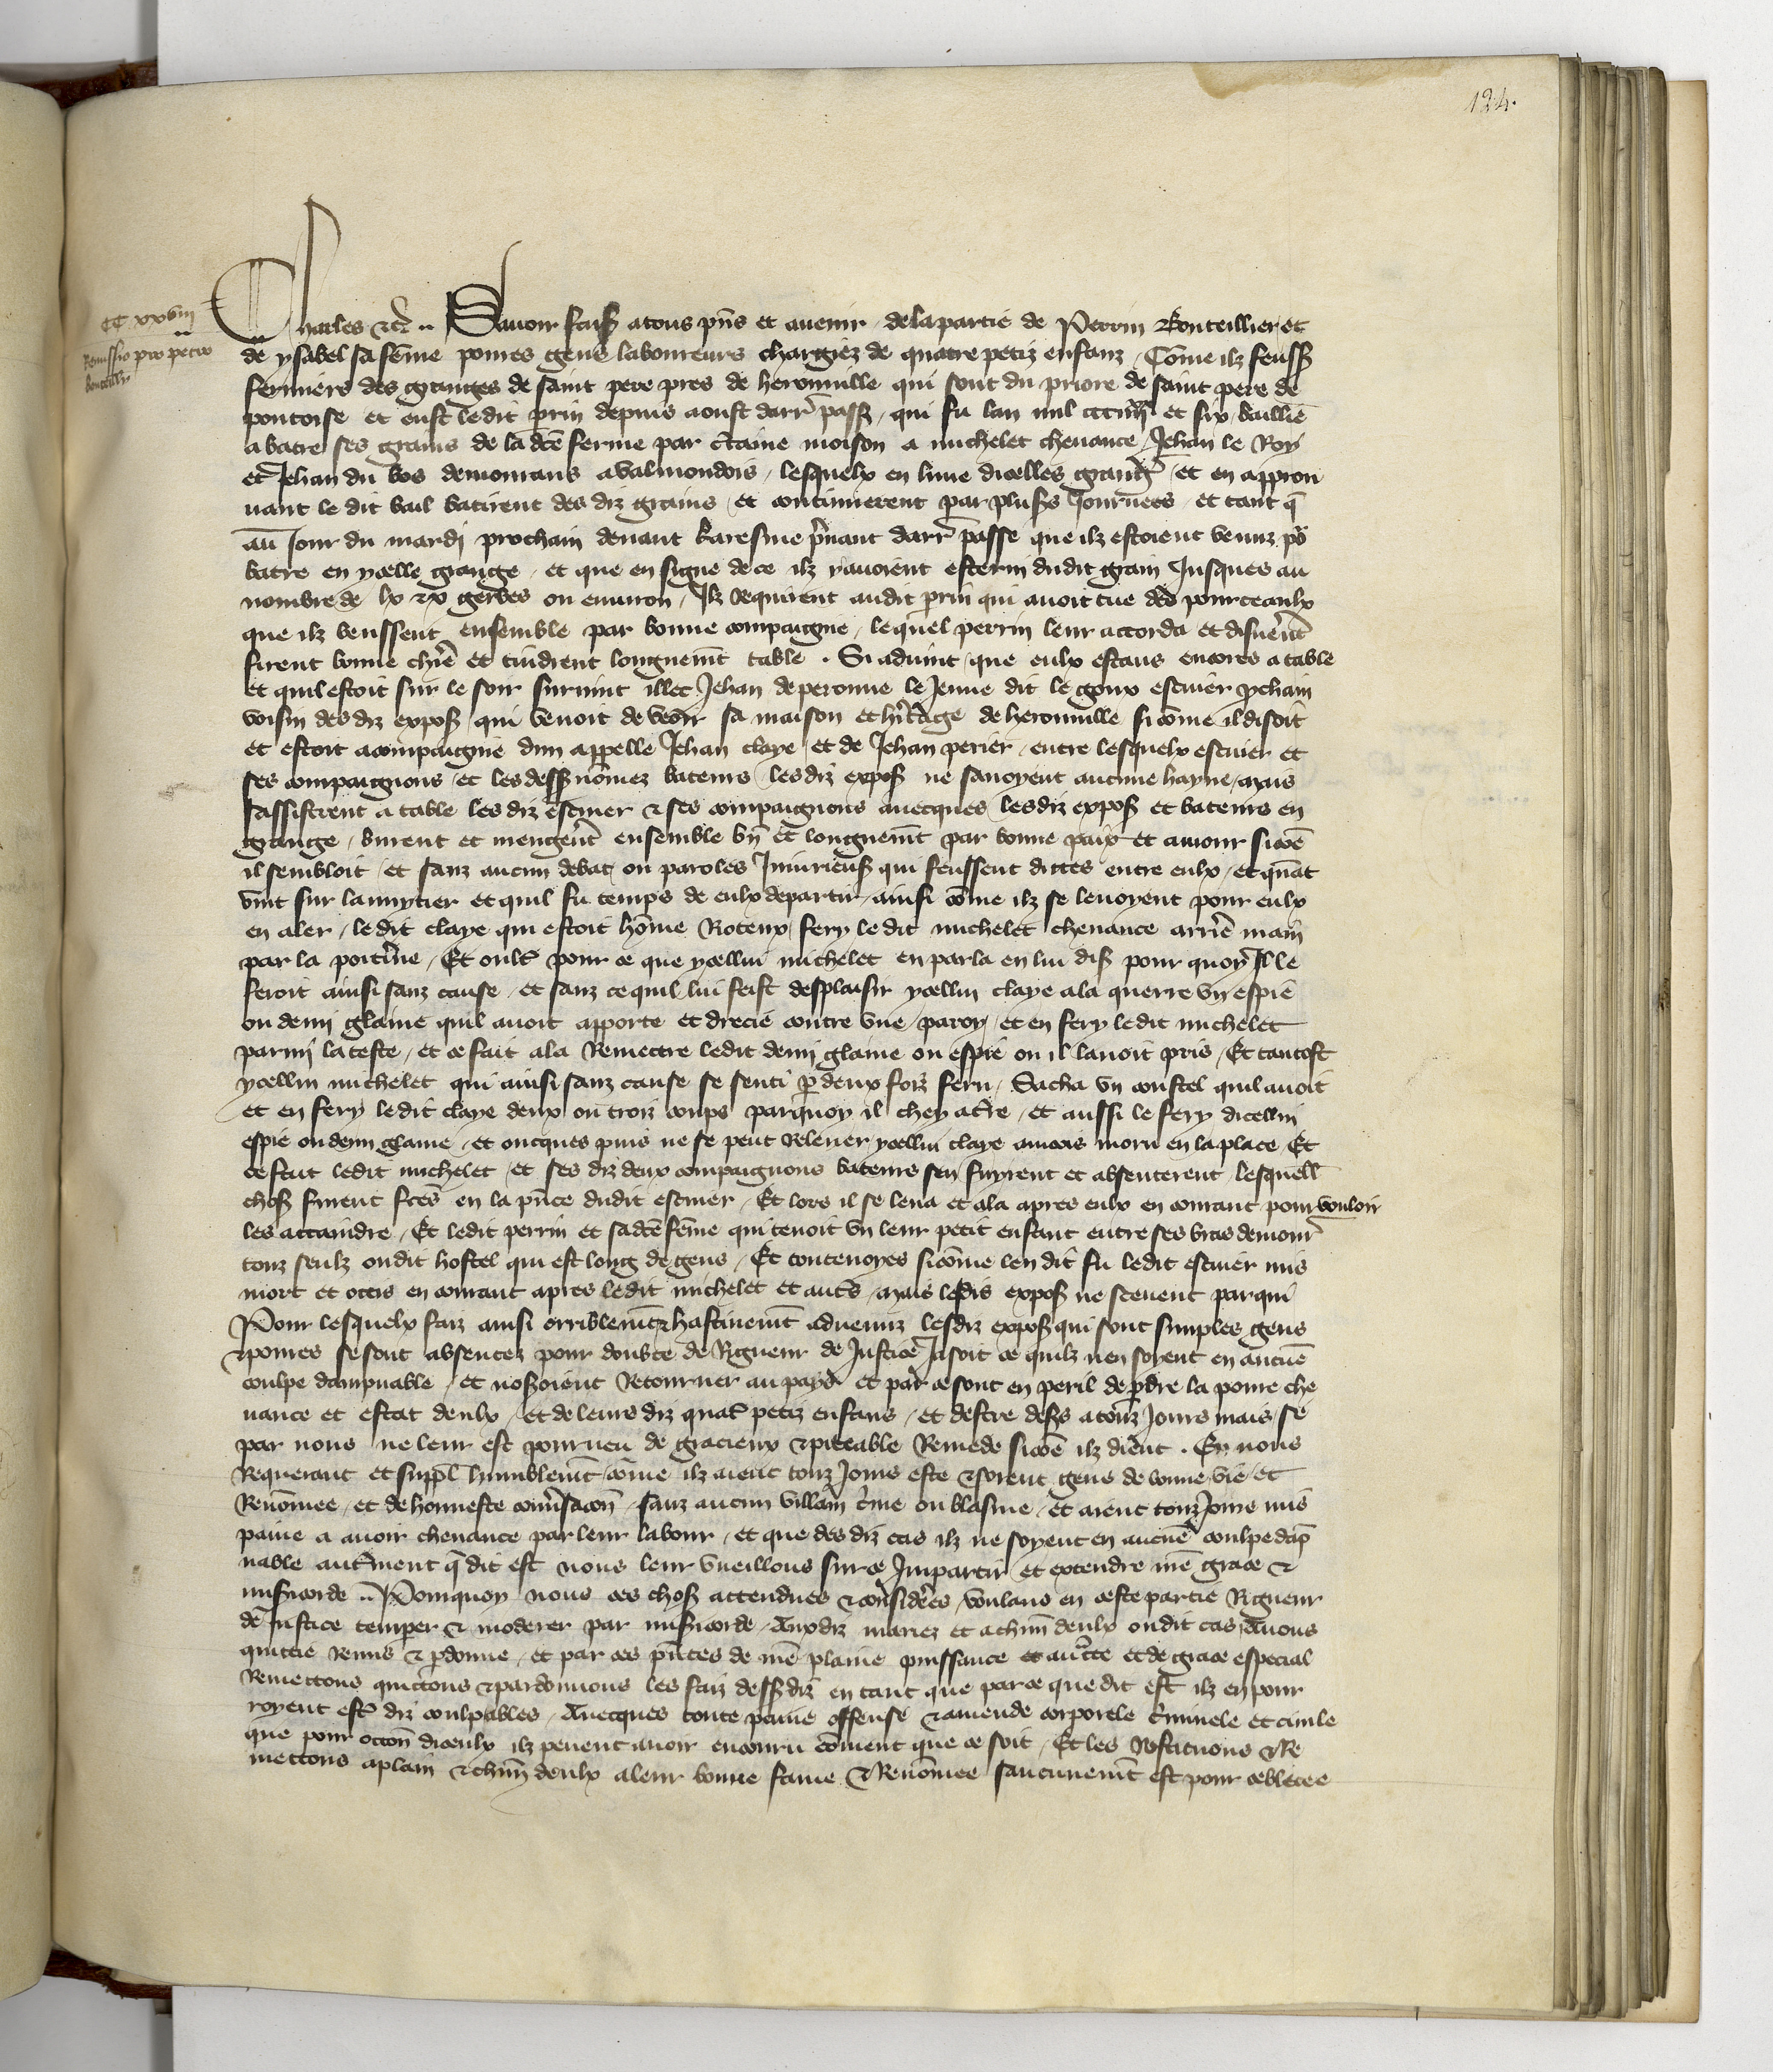 124.
CC XXVIII
Remissio pro petro
boutillr
Charles etc̃ .. Savoir faiss̃ a tous pñs et avenir / de la partie de Perrin Bouteillier et
de ysabel sa fẽme povres gens laboureurs chargiez de quatre petiz enfanz / Cõme ilz feuss̃
fermiers des granges de saint pere pres de herouville qui sont du priore de saint pere de
pontoise et eust le dit prin depuis aoust darr̃ pass̃ / qui fu lan mil CCC IIIIxx et six / baillie
a batre ses grains de la dc̃e ferme par c̃taine moison a michelet chevance / Jehan le Roy
et Jehan du bos demourans a valmondois / lesquelx en lune dicelles grang̃ et en approu
vant le dit bail batirent des diz grains / et continuerent par pluss̃s journees / et tant q̃
au jour du mardi prochain devant karesme p̃nant darr̃ passe que ilz estoient venuz po
batre en ycelle grange / et que en signe de ce ilz y avoient esterni dudit grain jusques au
nombre de lx & x gerbes ou environ / Ilz requirent audit prin qui avoit tue des pourceaulx
que ilz beussent ensemble par bonne compaignie / lequel perrin leur accorda et disnerẽt
firent bonne chiẽe et tindrent longuemt̃ table . Si advint / que eulx estans encores a table
et quil estoit sur le soir survint illec Jehan de peronne le Jeune dit le goux escuier pchain
voisin des diz expos̃ qui venoit de veoir sa maison et hr̃itage de herouville si cõme il disoit
et estoit acompaignie dun appelle Jehan claye et de Jehan perier / entre lesquelx escuier et
ses compaignons et les dess̃ nõmez bateurs les diz expos̃ ne savoyent aucune hayne / mais
sassistrent a table les diz escuier & ses compaignons avecques les diz expos̃ et bateurs en
grange / burent et mengerẽt ensemble bñ et longuemt̃ par bonne paix et amour si cõe
il sembloit / et sanz aucun debat ou paroles injurieus̃ qui feussent dictes entre eulx / et quãt
vint sur lannytier et quil fu temps de eulx departir / ainsi cõme ilz se levoyent pour eulx
en aler / le dit claye qui estoit hõme Roteux fery le dit michelet chevance arrie main
par la poitrine / Et oult̃ pour ce que ycellui michelet en parla en lui dis̃ pour quoy Il le
feroit ainsi sanz cause / et sanz ce quil lui feist desplaisir ycellui claye ala querre vn espie
ou demi glaive quil avoit apporte et drecie contre vne paroy / et en fery le dit michelet
parmi la teste / et ce fait ala Remectre ledit demi glaive ou espie ou il lavoit pris / Et tantost
ycellui michelet qui ainsi sanz cause se senti p deux foiz feru / Sacha vn coustel quil avoit
et en fery le dit claye deux ou trois coups par quoy il chey a t̃re / et aussi le fery dicellui
espie ou demi glaive / et oncques puis ne se peut relever ycellui claye aincois moru en la place / Et
ce fait ledit michelet et ses diz deux compaignons bateurs sen fuyrent et absenterent / lesquell̃
chos̃ furent fc̃es en la pñce dudit escuier / Et lors il se leva et ala apres eulx en courant pour vouloir
les attaindre / Et ledit perrin et sa dc̃e fẽme qui tenoit vn leur petit enfant entre ses bras demour̃
touz seulz oudit hostel qui est long de gens / Et contenoyes si cõme len dit fu ledit escuier mis
mort et occis en courant apres ledit michelet et aut̃s / mais lesdis expos̃ ne scevent par qui
Pour lesquelx faiz ainsi orriblemt̃ & hastivemt̃ advenuz les diz expos̃ qui sont simples gens
& povres se sont absentez pour doubte de Rigueur de Justice Ja soit ce quilz nen soyent en aucũe
coulpe dampnable / et nosẽoient Retourner au pays et par ce sont en peril de pdre la povre che
vance et estat deulx / et de leurs diz quat̃ petiz enfans / et destre dess̃s a touz jours mais / se
par nous ne leur est pourveu de gracieux & piteable Remede si cõe ilz dient . En nous
Requerant et suppl̃ humblemt̃ / cõme ilz aient touz jours este & soient gens de bonne vie et
Renõmee / et de honneste conv̈saĉon / sanz aucun villain c̃me ou blasme / et aient touz jours mis
paine a avoir chevance par leur labour / et que des diz cas ilz ne soyent en aucũe coulpe dãp
nable aut̃ment q̃ dit est nous leur vueillons sur ce Impartir et extendre nr̃e grace &
miscorde .. Pourquoy nous ces chos̃ attendues & considerees voulans en ceste partie Rigueur
de justice temper & moderer par miscorde / Aux diz mariez et a chũn deulx oudit cas Avons
quittie Remis & pdonne / et par ces pñtes de nr̃e plaine puissance et auc̃tte et de grace especial
Remettons quictons & pardonnons les faiz dess̃ diz en tant que par ce que dit est ilz en pour
royent est̃ diz coulpables / Avecques toute paine offense & amende corporele c̃iminele et civile
que pour occõn diceulx ilz pevent avoir encouru cõment que ce soit / Et les restituons & Re
mettons a plain & chũn deulx a leur bonne fame & Renõmee saucunemt̃ est pour ce blecee